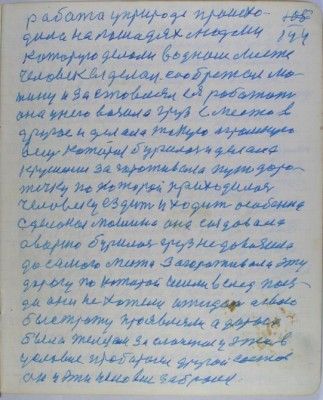 работа у природе происхо-
105
144
дила на лошадях людьми
которую делали в одном месте
человек сделал сообрежал ма-
шину и заставлял её работать
она у него возила груз с места в
другое и делала такую
силу которая бурилась и делала
крушения загораживала путь доро-
жечку по которой приходилося
человеку ездить и ходить особенно
сделоная машина она создавала
аварию бурилася груз недовозила
до самого места загораживала эту
дорогу по которой шли вслед поез-
да они не хотели ожидать свою
быстроту проявляли а дорога
была
условие пробирали другой состав
он эти человек забрали.